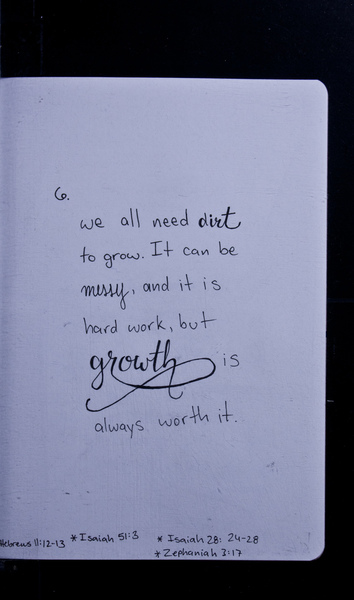 6.
we all need dirt
to grow. It can be
messy, and it is
hard work, but
growth is
always worth it.
Hebrews 11:12-13 * Isaiah 51:3 * Isaiah 28: 24-28
* Zephaniah 3:17